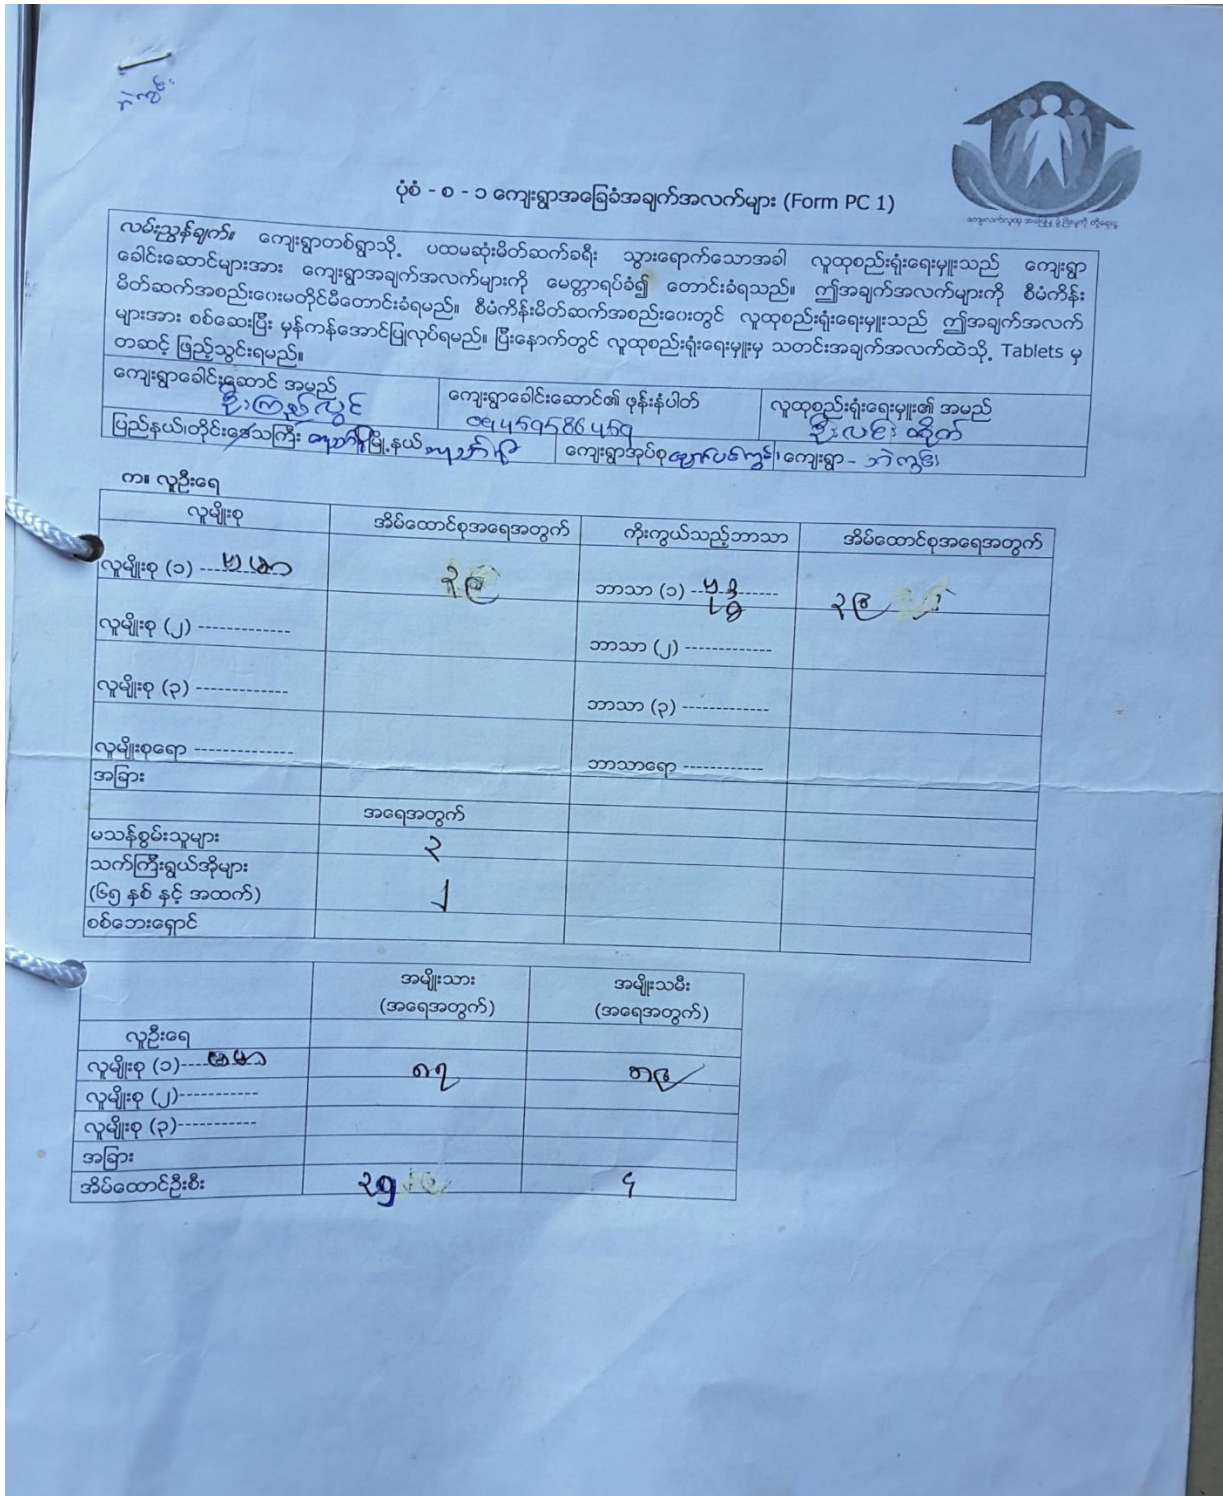 ဘဲကွင်း
ကျေးလက်လူထု အခြေပြု ဖွံ့ဖြိုးမှုကို တို့ရှေ့ရှု
ပုံစံ - စ - ၁ ကျေးရွာအခြေခံအချက်အလက်များ (Form PC 1)
လမ်းညွှန်ချက်။ ကျေးရွာတစ်ရွာသို့ ပထမဆုံးမိတ်ဆက်ခရီး သွားရောက်သောအခါ လူထုစည်းရုံးရေးမှူးသည် ကျေးရွာ
ခေါင်းဆောင်များအား ကျေးရွာအချက်အလက်များကို မေတ္တာရပ်ခံ၍ တောင်းခံရသည်။ ဤအချက်အလက်များကို စီမံကိန်း
မိတ်ဆက်အစည်းဝေးမတိုင်မီတောင်းခံရမည်။ စီမံကိန်းမိတ်ဆက်အစည်းဝေးတွင် လူထုစည်းရုံးရေးမှူးသည် ဤအချက်အလက်
များအား စစ်ဆေးပြီး မှန်ကန်အောင်ပြုလုပ်ရမည်။ ပြီးနောက်တွင် လူထုစည်းရုံးရေးမှူးမှ သတင်းအချက်အလက်ထဲသို့ Tablets မှ
တဆင့် ဖြည့်သွင်းရမည်။
ကျေးရွာခေါင်းဆောင် အမည် ကျေးရွာခေါင်းဆောင်၏ ဖုန်းနံပါတ် လူထုစည်းရုံးရေးမှူး၏ အမည်
ဦးကြည်လွင် 09459586459 ဦးလင်းထိုက်
ပြည်နယ်၊တိုင်းဒေသကြီး မြို့နယ် ကျေးရွာအုပ်စု ကျေးရွာ - ဘဲကွင်း
က။ လူဦးရေ
လူမျိုးစု အိမ်ထောင်စုအရေအတွက် ကိုးကွယ်သည့်ဘာသာ အိမ်ထောင်စုအရေအတွက်
လူမျိုးစု (၁) ဗမာ ၃၉ ဘာသာ (၁) ဗုဒ္ဓ ၃၉
လူမျိုးစု (၂) ------------- ဘာသာ (၂) -------------
လူမျိုးစု (၃) ------------- ဘာသာ (၃) -------------
လူမျိုးစုရော -------------- ဘာသာရော ------------
အခြား
အရေအတွက်
မသန်စွမ်းသူများ ၃
သက်ကြီးရွယ်အိုများ
(၆၅ နှစ် နှင့် အထက်) ၂
စစ်ဘေးရှောင်
အမျိုးသား အမျိုးသမီး
(အရေအတွက်) (အရေအတွက်)
လူဦးရေ
လူမျိုးစု (၁)---- ဗမာ ၈၇ ၈၉
လူမျိုးစု (၂)-----------
လူမျိုးစု (၃)-----------
အခြား
အိမ်ထောင်ဦးစီး ၃၅ ၄